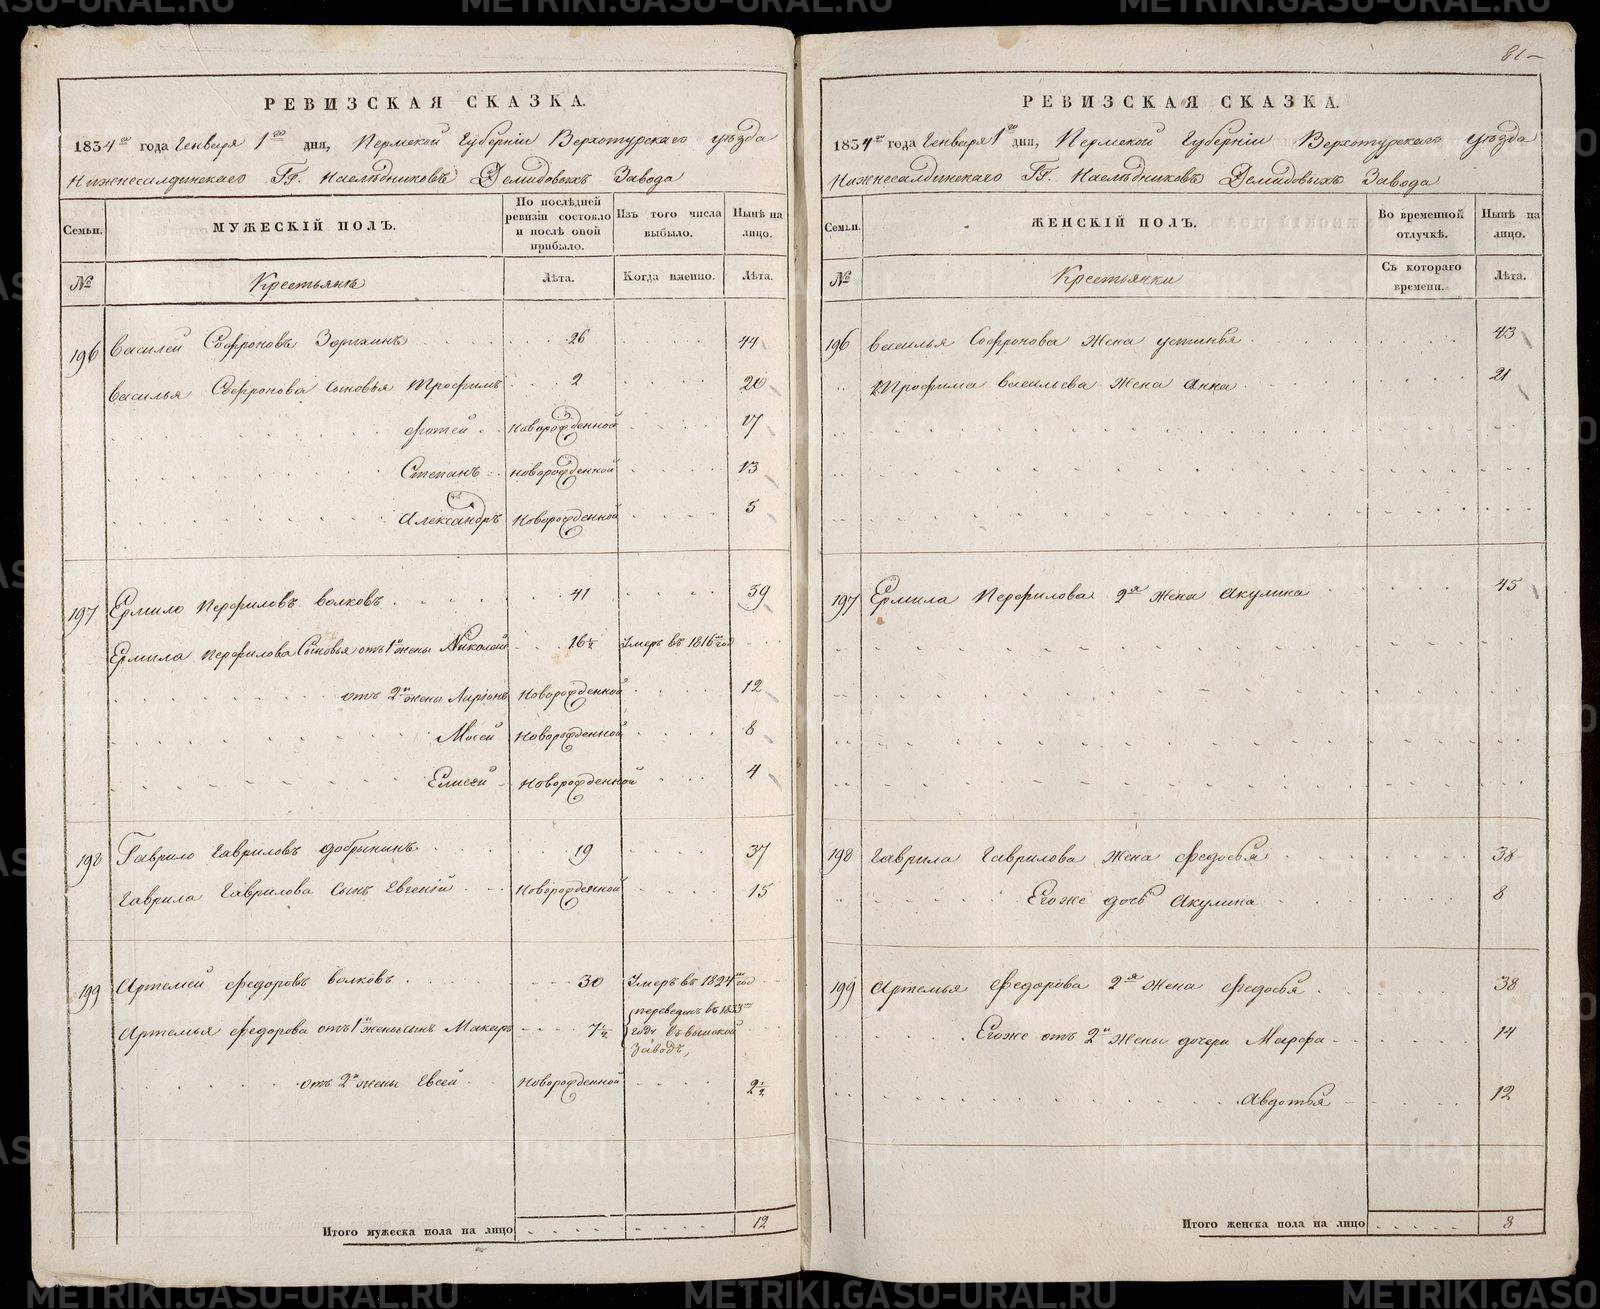 81
РЕВИЗСКАЯ СКАЗКА.
1834го года Генваря 1го дня, Пермской Губерніи Верхотурскаго уѣзда
Нижнесалдинскаго ГГ. Наслѣдниковъ Демидовыхъ Завода
Семьи. МУЖЕСКІЙ ПОЛЪ. По послѣдней ревизіи состояло и послѣ оной прибыло. Изъ того числа выбыло. Нынѣ на лицо.
№ Крестьянъ Лѣта. Когда именно. Лѣта.
196 Василей Софроновъ 26 44
Василья Софронова сыновья Трофимъ 2 20
Фотей новорожденной 17
Степанъ новорожденной 13
Александръ новорожденной 5
197 Ермило Перфиловъ Волковъ 41 59
Ермила Перфилова сыновья отъ 1й жены Николай 16½ умеръ въ 1816м год
отъ 2й жены Ларіонъ новорожденной 12
Мосей новорожденной 8
Елисей новорожденной 4
198 Гаврило Гавриловъ Добрынинъ 19 37
Гаврила Гаврилова сынъ Евгеній новорожденной 15
199 Артемей Федоровъ Волковъ 30 умеръ въ 1824м год
Артемья Федорова отъ 1й жены сынъ Макаръ 7½ переведенъ въ 1833м году въ Выйской заводъ,
отъ 2й жены Евсей новорожденной 2½
Итого мужеска пола на лицо 12
РЕВИЗСКАЯ СКАЗКА.
1834го года Генваря 1го дня, Пермской Губерніи Верхотурскаго уѣзда
Нижнесалдинскаго ГГ. Наслѣдниковъ Демидовыхъ Завода
Семьи. ЖЕНСКІЙ ПОЛЪ. Во временной отлучкѣ. Нынѣ на лицо.
№ Крестьянки Съ котораго времени. Лѣта.
196 Василья Софронова жена Устинья 43
Трофима Васильева жена Анна 21
197 Ермила Перфилова 2я жена Акулина 45
198 Гаврила Гаврилова жена Федосья 38
Егоже дочь Акулина 8
199 Артемья Федорова 2я жена Федосья 38
Егоже отъ 2й жены дочери Марфа 14
Авдотья 12
Итого женска пола на лицо 8
METRIKI.GASO-URAL.RU